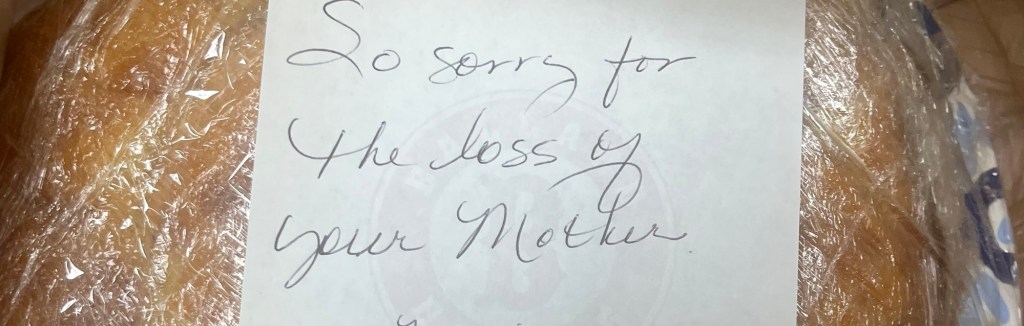 So sorry for
the loss of
your Mother.